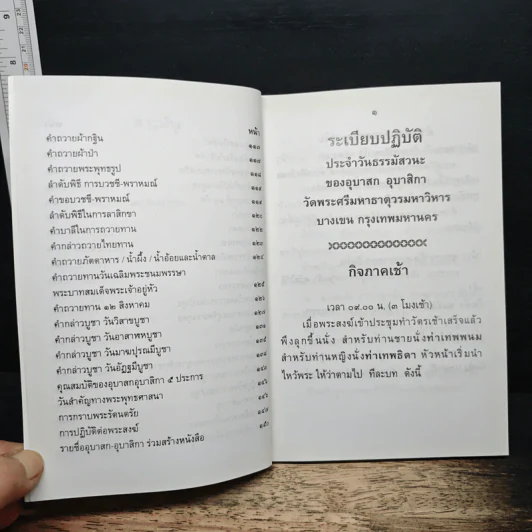 หน้า
คำถวายผ้ากฐิน ๑๑๗
คำถวายผ้าป่า ๑๑๗
คำถวายพระพุทธรูป ๑๑๘
ลำดับพิธี การบวชชี-พราหมณ์ ๑๑๙
คำขอบวชชี-พราหมณ์ ๑๑๙
ลำดับพิธีในการลาสิกขา ๑๒๐
คำบาลีในการถวายทาน ๑๒๐
คำกล่าวถวายไทยทาน ๑๒๓
คำถวายภัตตาหาร / น้ำผึ้ง / น้ำอ้อยและน้ำตาล ๑๒๔
คำถวายทานวันเฉลิมพระชนมพรรษา
พระบาทสมเด็จพระเจ้าอยู่หัว ๑๒๕
คำถวายทาน ๑๒ สิงหาคม ๑๒๖
คำกล่าวบูชา วันวิสาขบูชา ๑๒๘
คำกล่าวบูชา วันอาสาฬหบูชา ๑๓๑
คำกล่าวบูชา วันมาฆปุรณมีบูชา ๑๓๕
คำกล่าวบูชา วันอัฏฐมีบูชา
คุณสมบัติของอุบาสกอุบาสิกา ๕ ประการ
วันสำคัญทางพระพุทธศาสนา
การกราบพระรัตนตรัย
การปฏิบัติต่อพระสงฆ์
รายชื่ออุบาสก-อุบาสิกา ร่วมสร้างหนังสือ ๑๕๐
๑
ระเบียบปฏิบัติ
ประจำวันธรรมัสวนะ
ของอุบาสก อุบาสิกา
วัดพระศรีมหาธาตุวรมหาวิหาร
บางเขน กรุงเทพมหานคร
กิจภาคเช้า
เวลา ๐๙.๐๐ น. (๓ โมงเช้า)
เมื่อพระสงฆ์เข้าประชุมทำวัตรเช้าเสร็จแล้ว
พึงลุกขึ้นนั่ง สำหรับท่านชายนั่งท่าเทพพนม
สำหรับท่านหญิงนั่งท่าเทพธิดา หัวหน้าเริ่มนำ
ไหว้พระ ให้ว่าตามไป ทีละบท ดังนี้